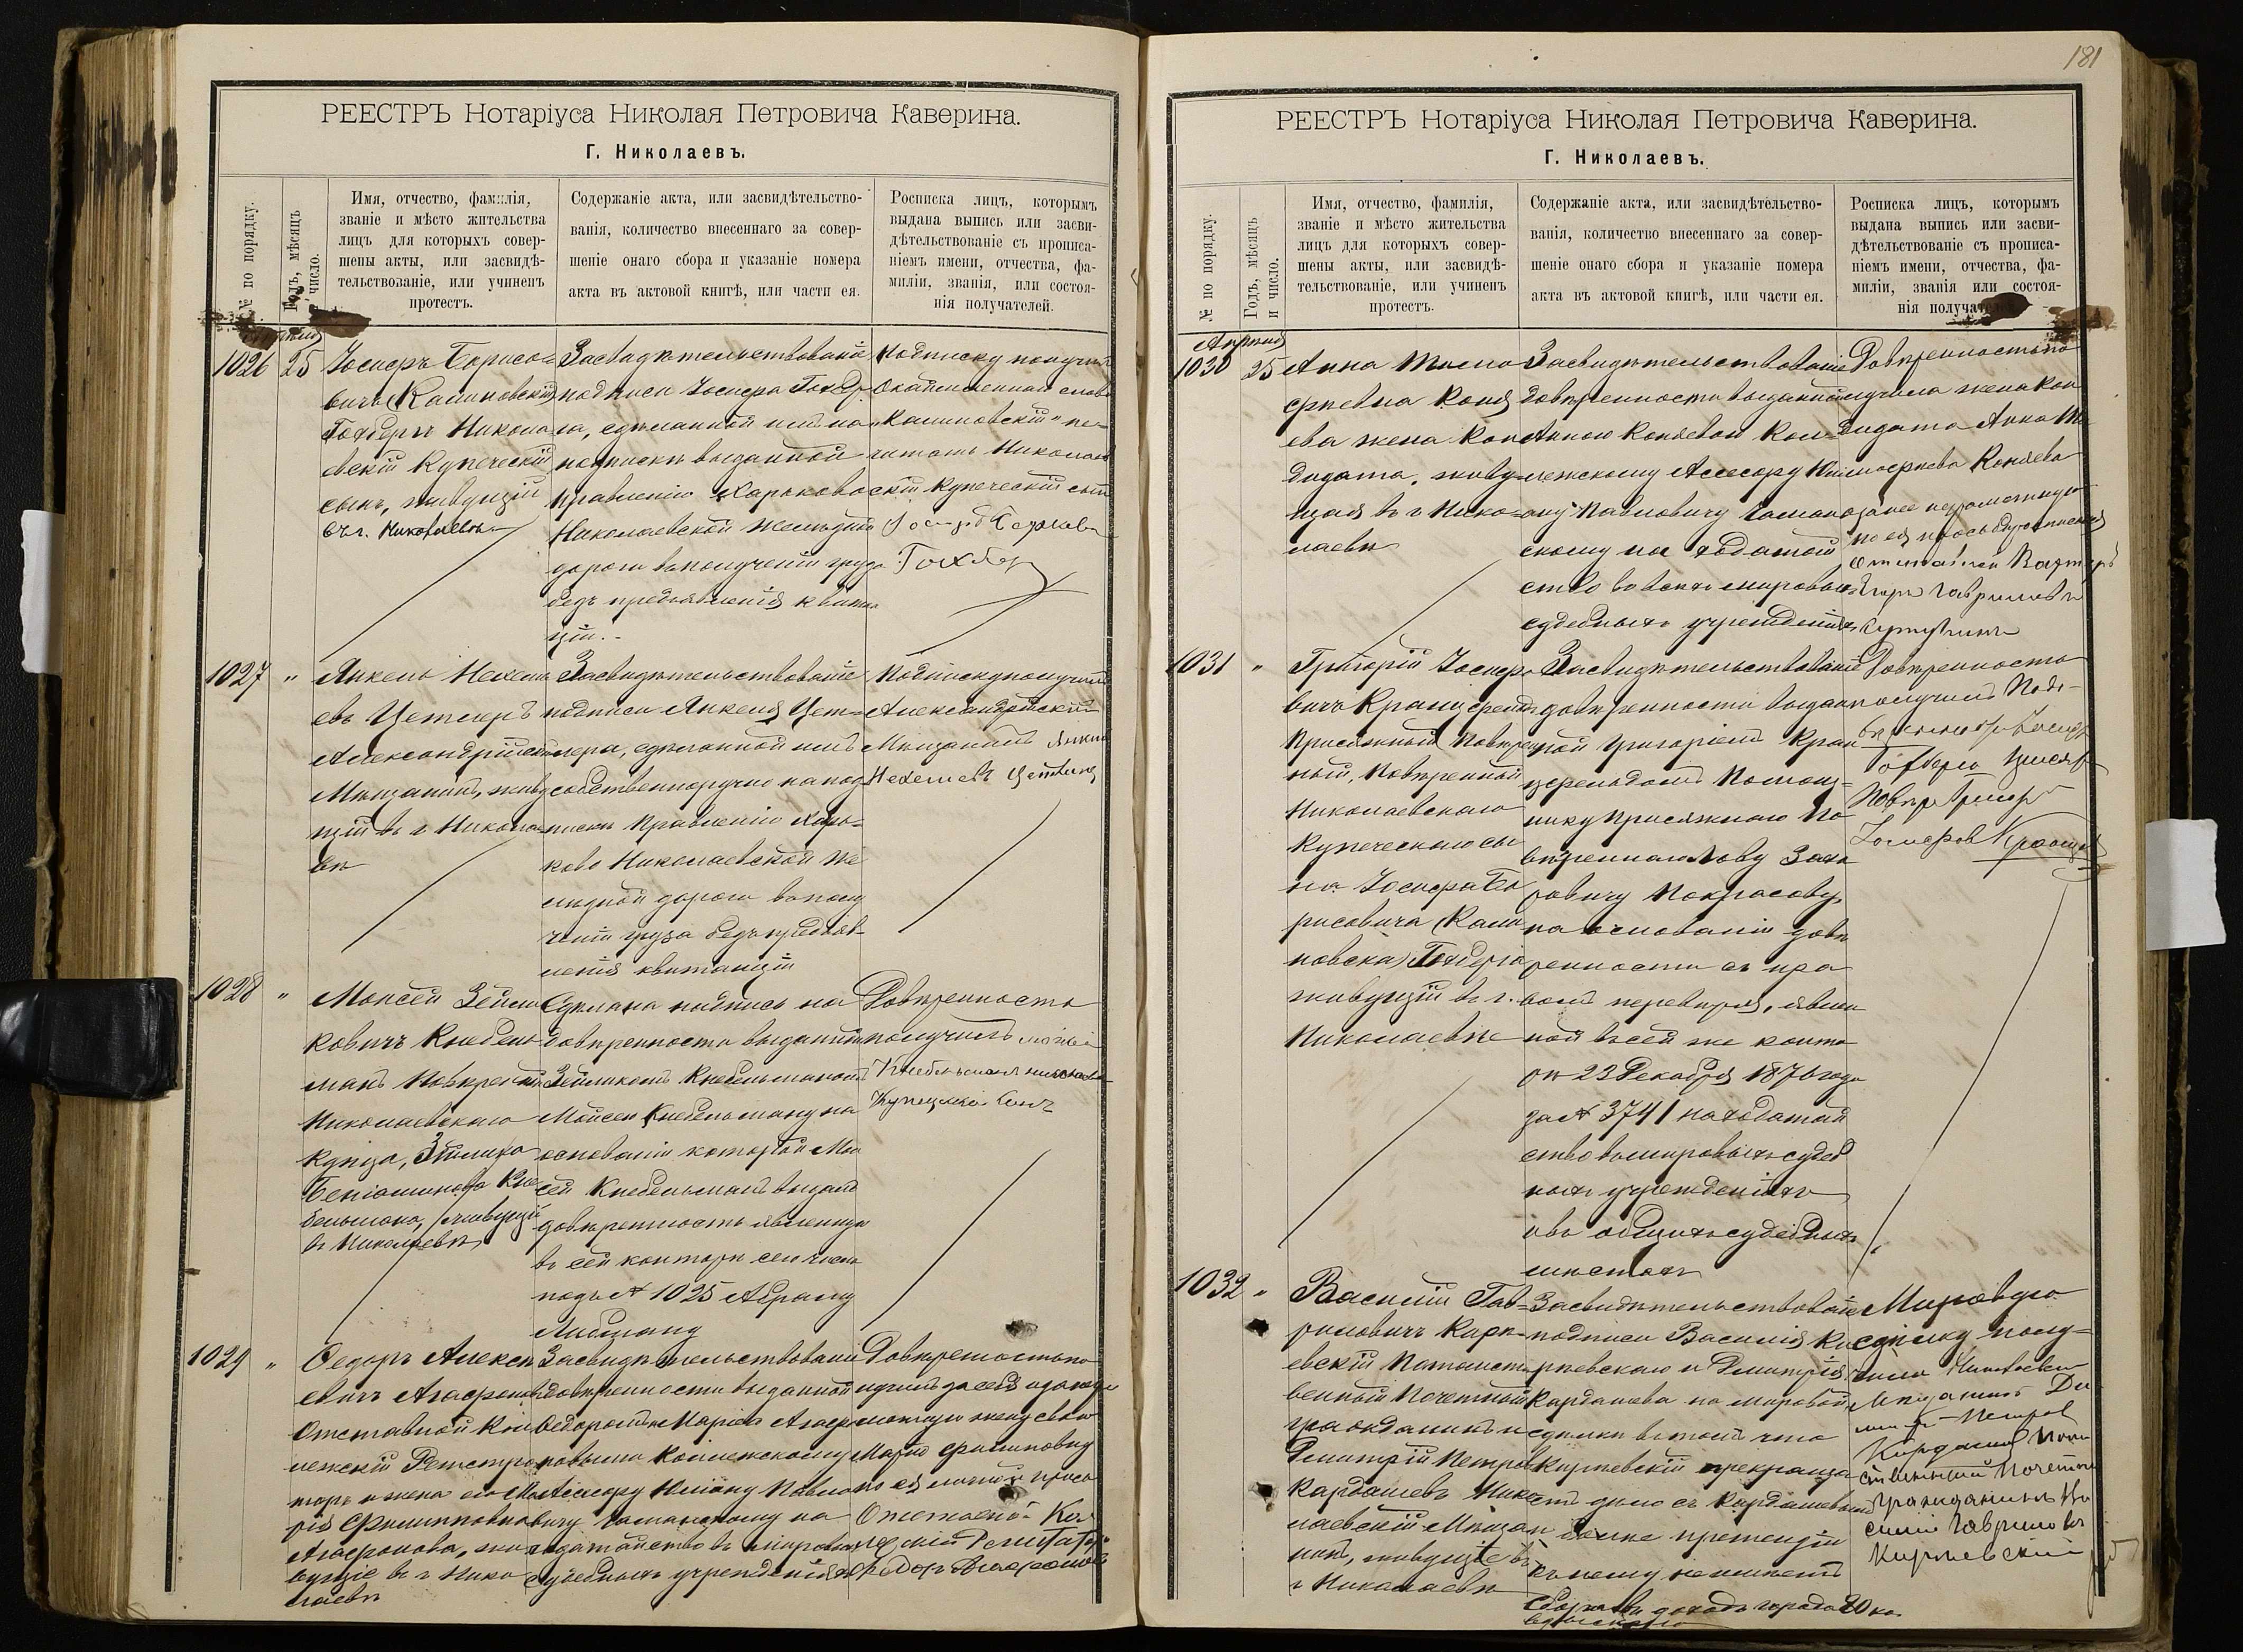 РЕЕСТРЪ Нотаріуса Николая Петровича Каверина.
Г. Николаевъ.
№ по порядку.
Годъ, мѣсяцъ
и число.
Имя, отчество, фамилія,
званіе и мѣсто жительства
лицъ для которыхъ совер-
шены акты, или засвидѣ-
тельствованіе, или учиненъ
протестъ.
Содержаніе акта, или засвидѣтельство-
ванія, количество внесеннаго за совер-
шеніе онаго сбора и указаніе номера
акта въ актовой книгѣ, или части ея.
Росписка лицъ, которымъ
выдана выпись или засви-
дѣтельствованіе съ прописа-
ніемъ имени, отчества, фа-
миліи, званія, или состоя-
нія получателей.
1026
25
Іосифъ Борисо-
вичъ (Калиновскій)
Гохбергъ Никола-
евскій Купеческій
сынъ, живущій
въ г. Николаевѣ
Засвидѣтельствованіе
подписи Іосифа Гохбер-
га, сдѣланной имъ на
подпискѣ выданной
Правленію Харьково
Николаевской желѣзной
дороги въ полученіи груза
безъ предъявленія квитан
ціи.-
Подписку получилъ
Калиновскій
читать Николаев
скій Купеческій сынъ
Гохберг
1027
"
Янкель Нехемь
евъ Цетлеръ
Александрійскій
Мѣщанинъ, живу
щій въ г Никола-
вѣ
Засвидѣтельствованіе
подписи Янкеля Цет-
лера, сдѣланной имъ
собственноручно на под
пискѣ Правленію Харь-
ково Николаевской же
лѣзной дороги въ полу
ченіи груза безъ предъяв-
ленія квитанціи
Подписку получилъ
Александрійскій
Мѣщанинъ Янкель
Нехемьевъ
1028
"
Моисей Зелико
ковичъ Кнебель
манъ Повѣренный
Николаевскаго
Купца, Зелика
Беніаминова Кне
бельмана, живущій
въ Николаевѣ
Сдѣлана надпись на
довѣренности выданной
Зеликомъ Кнебельманомъ
Мойсею Кнебельману на
основаніи которой Мои
сей Кнебельманъ выдалъ
довѣренность явленную
въ сей конторѣ сего числа
подъ № 1025 Абраму
Либману
Довѣренность
получилъ
Купеческій сынъ
1029
"
Ѳедоръ Алексѣ
евичъ Агафоновъ
Отставной Кол
лежскій Регистра
торъ и жена его Ма
рія Филипповна
Агафонова, жи
вущіе въ г Нико
лаевѣ
Засвидѣтельствованіе
довѣренности выданной
Ѳедоромъ и Маріею Агаф
оновыми Коллежскому
Ассесору Юліану Павло
вичу Романскому на
ходатайство въ мировыхъ
судебныхъ учрежденіяхъ
Довѣренность по
лучилъ за себя и за негра
мотную жену свою
Марію Филипповну
по ея личной прось
Отставной Кол
лежскій Регистраторъ
Федоръ Агафоновъ
181
РЕЕСТРЪ Нотаріуса Николая Петровича Каверина.
Г. Николаевъ.
№ по порядку.
Годъ, мѣсяцъ
и число.
Имя, отчество, фамилія,
званіе и мѣсто жительства
лицъ для которыхъ совер-
шены акты, или засвидѣ-
тельствованіе, или учиненъ
протестъ.
Содержаніе акта, или засвидѣтельство-
ванія, количество внесеннаго за совер-
шеніе онаго сбора и указаніе номера
акта въ актовой книгѣ, или части ея.
Росписка лицъ, которымъ
выдана выпись или засви-
дѣтельствованіе съ прописа-
ніемъ имени, отчества, фа-
миліи, званія или состоя-
нія получат
Апрѣль
1030
25
Анна Тимо
фѣевна Коня
ева жена Кан
дидата, живу-
щая въ г Нико-
лаевѣ
Засвидѣтельствованіе
довѣренности выданной
Анною Коняевой Кол-
лежскому Ассесору Юлі
ану Павловичу Роман
скому на ходатай
ство во всѣхъ мировыхъ
судебныхъ учрежденіяхъ
Довѣренность по
лучила жена Кан
дидата Анна Ти
мофѣева Коняева
по ея просьбѣ
1031
"
Григорій Іосифо
вичъ Кранцфельдъ
Присяжный Повѣрен
ный, Повѣренный
Николаевскаго
Купеческаго сы
на Іосифа Бо
рисовича (Кали
новскаго) Гохберга
живущій въ г.
Николаевѣ
Засвидѣтельствованіе
довѣренности выдан
ной Григоріемъ Кран
цфельдомъ Помощ-
нику Присяжнаго По
вѣреннаго Льву Заха
ровичу Покрасову,
на основаніи довѣ
ренности съ пра
вомъ перевѣрія, явлен
ной въ сей же конто
рѣ 23 Декабря 1876 года
за № 3741 на ходатай
ство въ мировыхъ судеб
ныхъ учрежденіяхъ
и въ общихъ судебныхъ
мѣстахъ
Довѣренность
получилъ
1032
"
Василій Гав-
риловичъ Кирѣ-
евскій Потомст
венный Почетный
гражданинъ и
Дмитрій Петров
Кардашевъ Нико
лаевскій Мѣщан
инъ, живущіе въ
г Николаевѣ
Засвидѣтельствованіе
подписи Василія Ки
рѣевскаго и Дмитрія
Кардашева на мировой
сдѣлкѣ въ томъ что
Кирѣевскій прекраща
етъ дѣло съ Кардашевымъ
и болѣе претензіи
къ нему не имѣетъ
Сбора въ доходъ города 20 ко.
взыскано
Мировую
сдѣлку полу-
чили Николаевскій
Мѣщанинъ Ди
митрій Петров
Кардашевъ Пото
ственный Почетный
Гражданинъ Ва
силій Гавриловъ
Кирѣевскій